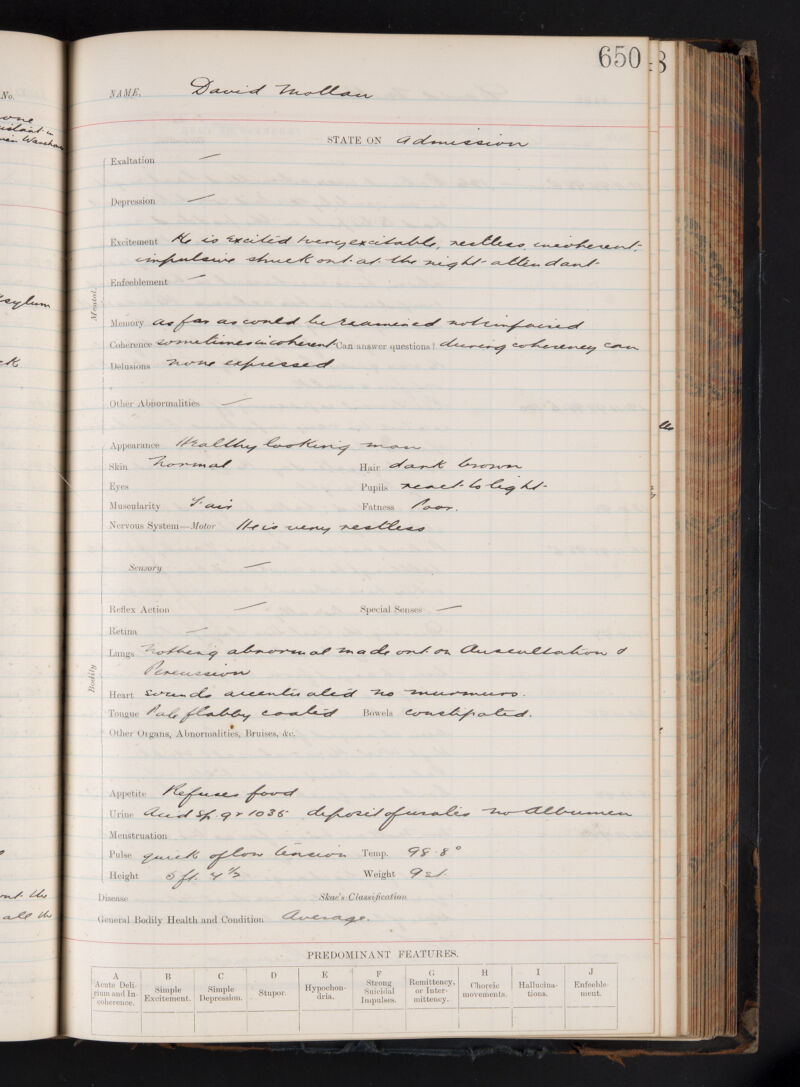 650
8
No.
NAME, David Mollan
STATE ON admission
Exaltation —
Depression —
Excitement He is excited & very excitable, restless, incoherent,
impulsive struck out at the night attendant
Enfeeblement —
Mental.
Memory as far as could be examined not impaired
Coherence sometimes incoherent Can answer questions? during coherency can
Delusions none expressed
Other Abnormalities —
Appearance Healthy looking man
Skin Normal Hair dark brown
Eyes Pupils react to light
Muscularity Fair Fatness Poor.
Nervous System—Motor He is very restless
Sensory —
Reflex Action — Special Senses —
Retina —
Lungs Nothing abnormal made out on Auscultation &
Percussion
Bodily
Heart sounds accentuated no murmurs.
Tongue Pale flabby coated Bowels constipated.
Other Organs, Abnormalities, Bruises, &c.
Appetite Refuses food
Urine Acid Sp gr 1035 deposit of urates no Albumen
Menstruation
Pulse quick of low tension Temp. 98.8°
Height 5 ft. 4 ½ Weight 9 st.
Disease Skae's Classification
General Bodily Health and Condition Average.
PREDOMINANT FEATURES.
A B C D E F G H I J
Acute Delirium and Incoherence. Simple Excitement. Simple Depression. Stupor. Hypochondria. Strong Suicidal Impulses. Remittency, or Intermittency. Choreic movements. Hallucinations. Enfeeblement.